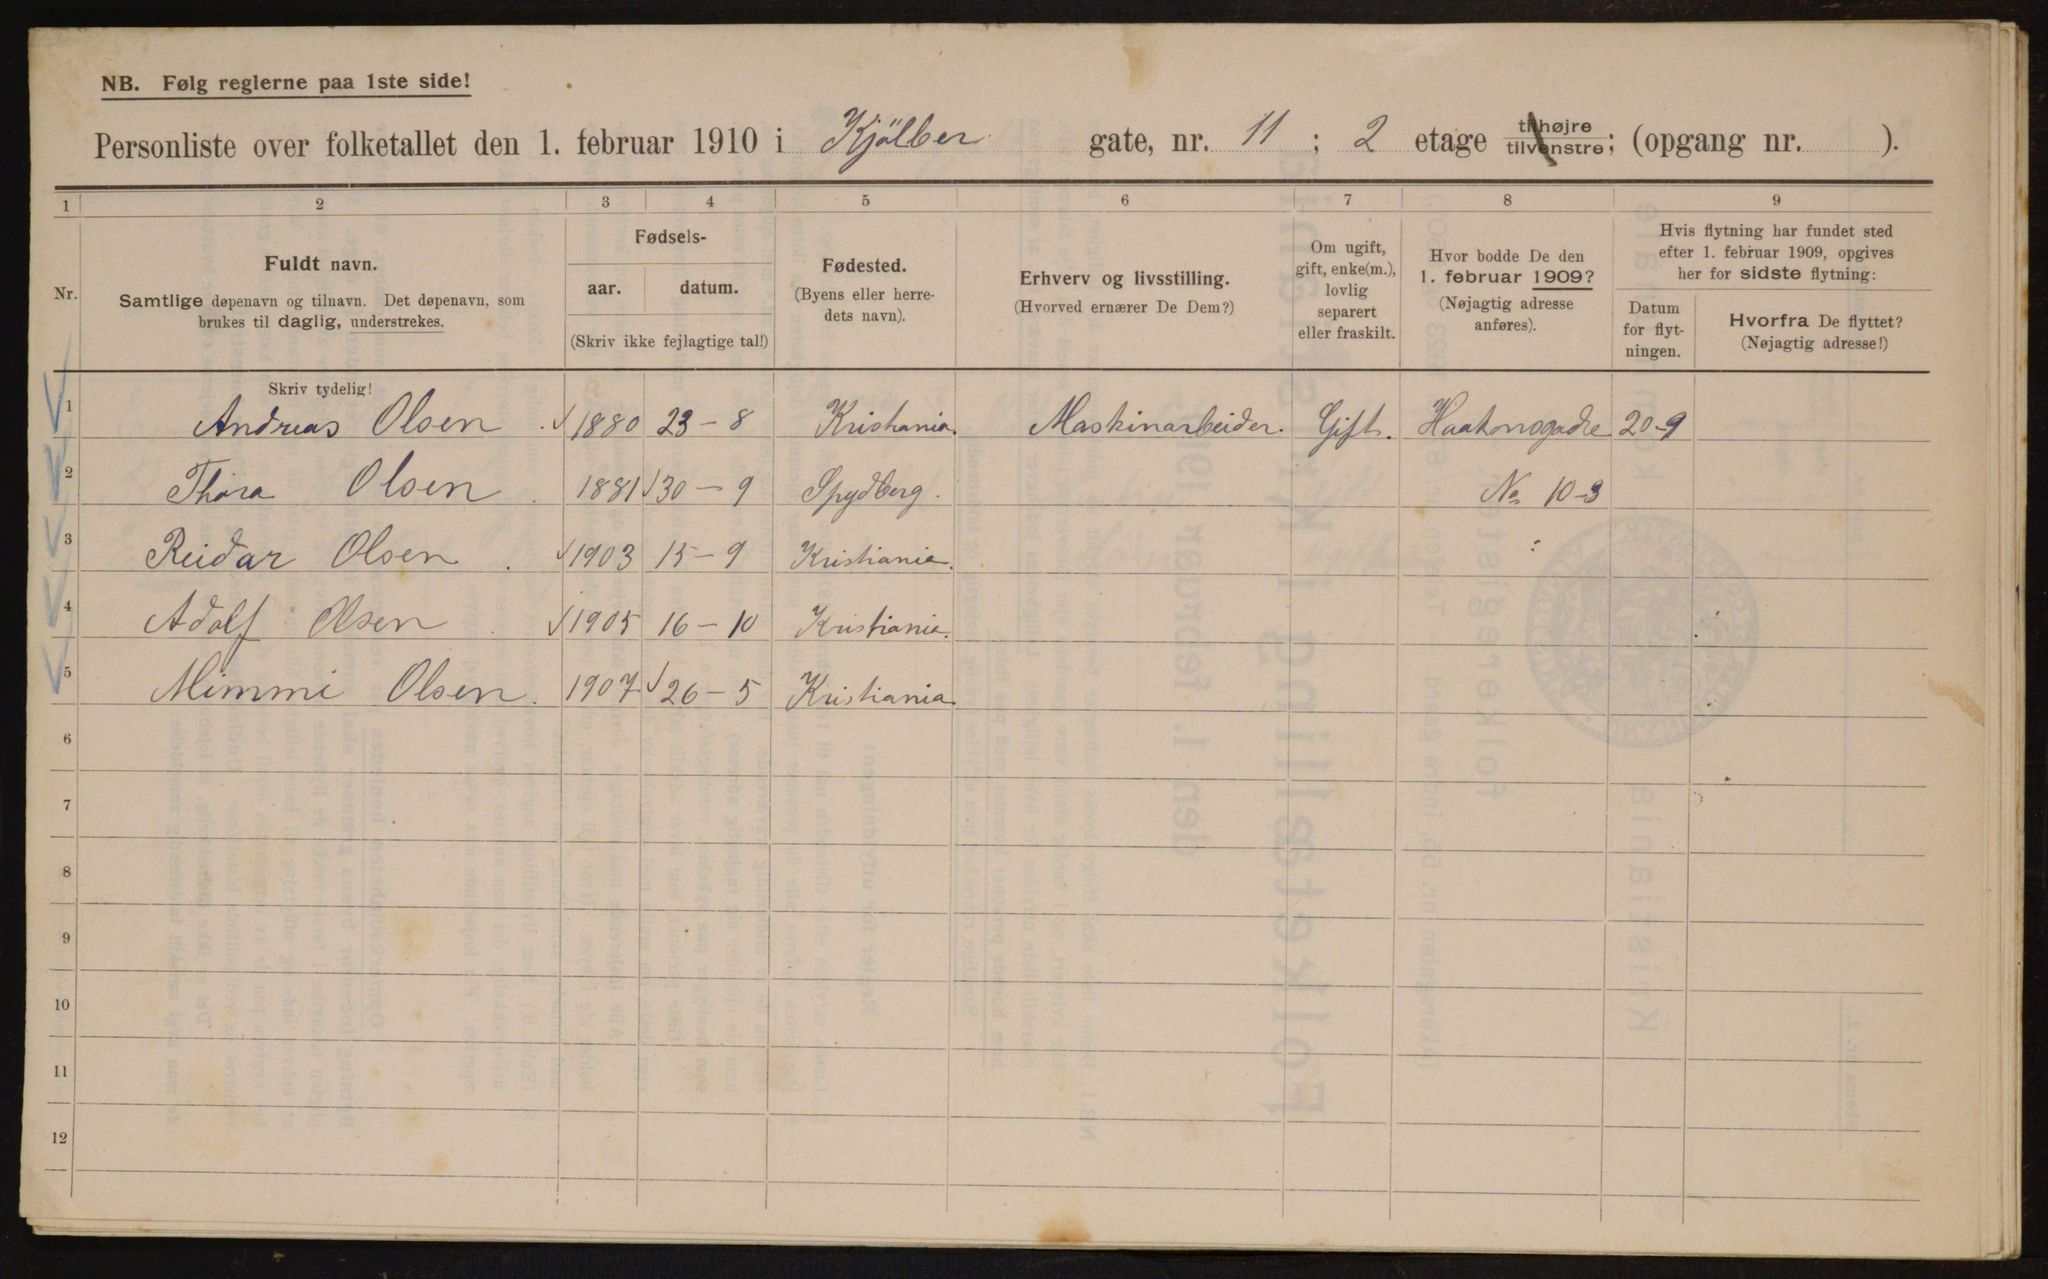 NB. Følg reglerne paa 1ste side!
Personliste over folketallet den 1. februar 1910 i Kjölber gate, nr. 11 ; 2 etage tilhøjre tilvenstre; (opgang nr. ).
1 2 3 4 5 6 7 8 9
Nr.
Fuldt navn.
Samtlige døpenavn og tilnavn. Det døpenavn, som
brukes til daglig, understrekes.
Fødsels-
aar. datum.
(Skriv ikke fejlagtige tal!)
Fødested.
(Byens eller herre-
dets navn).
Erhverv og livsstilling.
(Hvorved ernærer De Dem?)
Om ugift,
gift, enke(m.),
lovlig
separert
eller fraskilt.
Hvor bodde De den
1. februar 1909?
(Nøjagtig adresse
anføres).
Hvis flytning har fundet sted
efter 1. februar 1909, opgives
her for sidste flytning:
Datum
for flyt-
ningen.
Hvorfra De flyttet?
(Nøjagtig adresse!)
Skriv tydelig!
1 Andreas Olsen 1880 23-8 Kristiania. Maskinarbeider. Gift. Haakonsgade 20-9
2 Thora Olsen 1881 30-9 Spydberg. No 10-3
3 Reidar Olsen 1903 15-9 Kristiania.
4 Adolf Olsen 1905 16-10 Kristiania.
5 Mimmi Olsen. 1907 26-5 Kristiania.
6
7
8
9
10
11
12